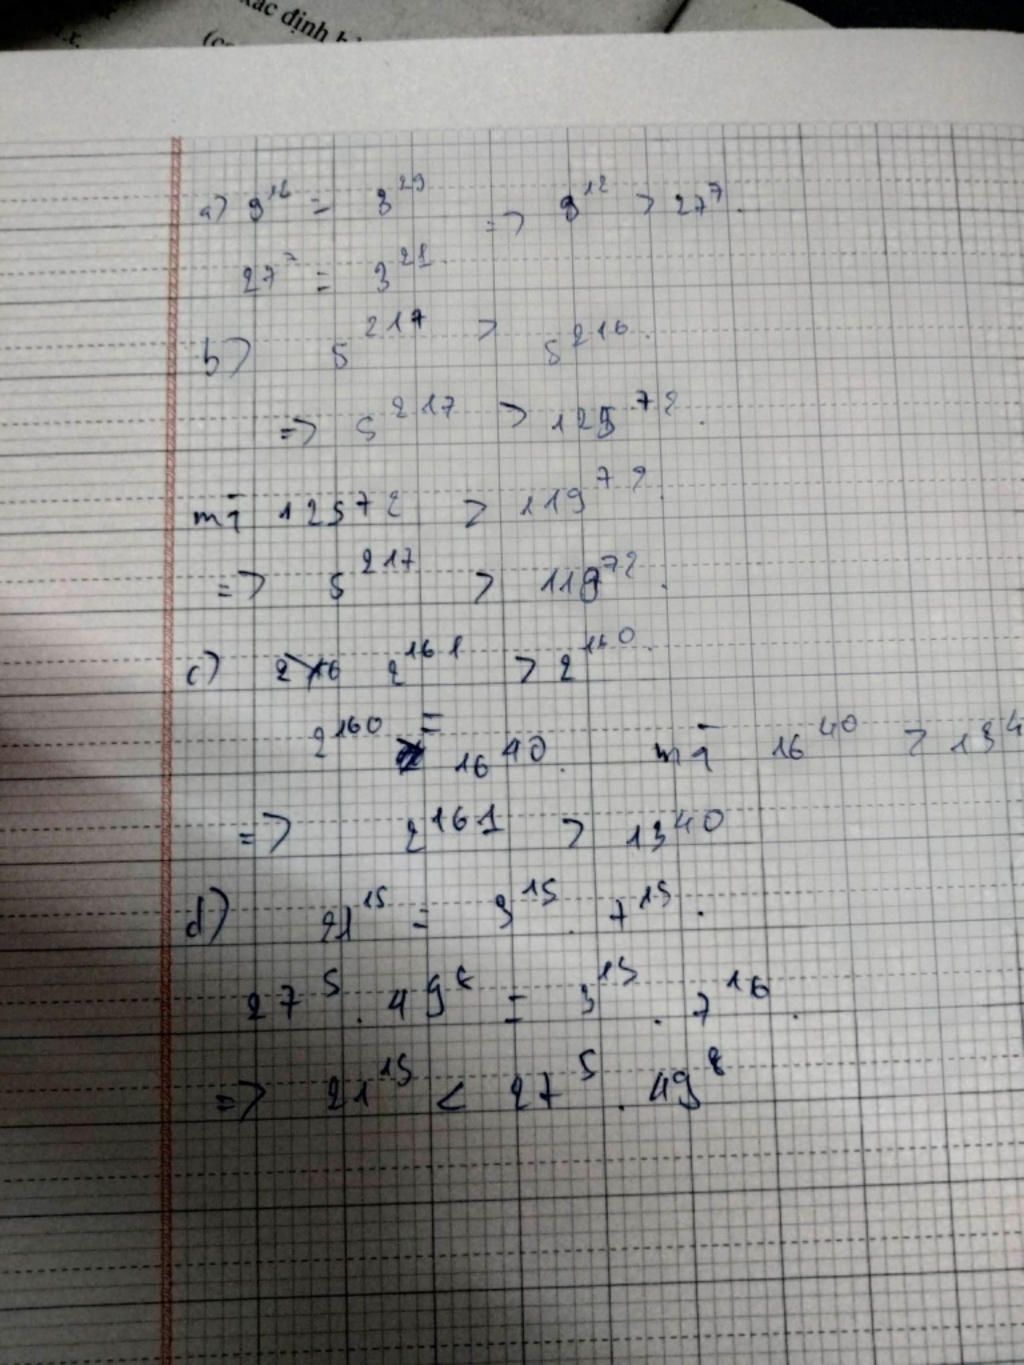 ác định h
(c
1.x.
a) 9^12 = 3^29 => 9^12 > 27^7.
27^7 = 3^21.
b) 5^217 > 5^216.
=> 5^217 > 125^72.
mà 125^72 > 119^72.
=> 5^217 > 119^72.
c) 2^161 > 2^160.
2^160 = 16^40. mà 16^40 > 13^4
=> 2^161 > 13^40
d) 21^15 = 3^15 . 7^15.
27^5 . 49^8 = 3^15 . 7^16.
=> 21^15 < 27^5 . 49^8